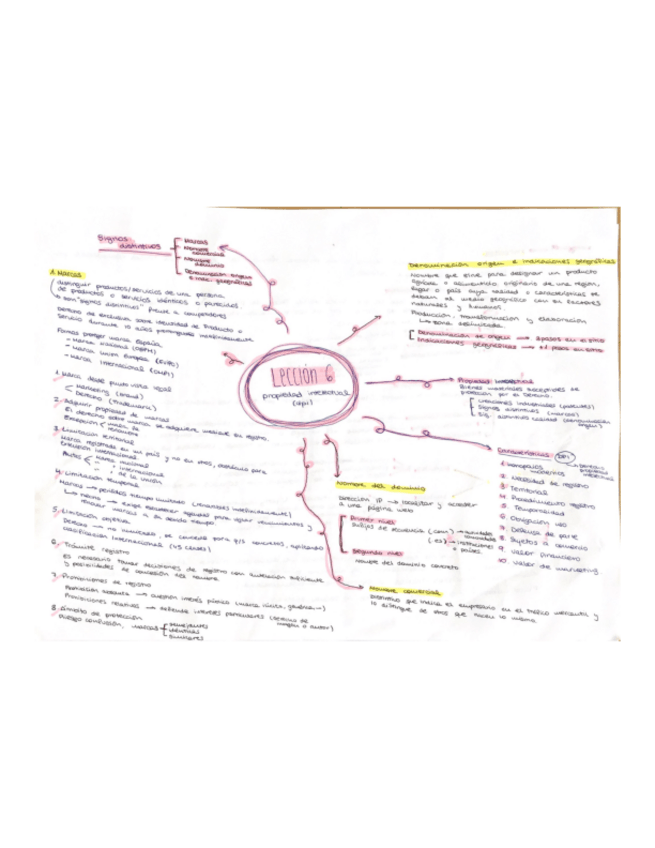 Signos distintivos
Marcas
Nombre comercial
Nombre dominio
Denominación origen e indic. geográficas
1. Marcas
distinguir productos/servicios de una persona
de productos o servicios idénticos o parecidos
o son "signos distintivos" frente a competidores
Derecho de exclusiva sobre identidad de Producto o
Servicio durante 10 años prorrogables indefinidamente
Formas proteger marca España
- Marca nacional (OEPM)
- Marca Unión Europea (EUIPO)
- Marca internacional (OMPI)
1. Marca desde punto vista legal
Marketing (brand)
Derecho (Trademark)
2. Adquirir propiedad de marca
El derecho sobre marca se adquiere mediante su registro.
3. Limitación territorial
Marca registrada en un país y no en otros, obstáculo para
marca nacional
" internacional
" de la unión
4. Limitación temporal
Marcas → períodos tiempo limitado (renovables indefinidamente)
5. Limitación objetiva
clasificación internacional (45 clases)
6. Trámite registro
es necesario tomar decisiones de registro con antelación suficiente
7. Prohibiciones de registro
Prohibiciones relativas → defiende intereses particulares
8. Ámbito de protección
Riesgo confusión, marcas
semejantes
idénticas
similares
Lección 6
propiedad intelectual
(dpi)
Denominación origen e indicaciones geográficas
Nombre que sirve para designar un producto
agrícola o alimenticio originario de una región,
lugar o país cuya calidad o características se
deben al medio geográfico con sus factores
naturales y humanos.
Producción, transformación y elaboración
↳ zona delimitada.
Denominación de origen → 3 pasos en el sitio
Indicaciones geográficas → +1 paso en sitio
Propiedad intelectual
Bienes inmateriales susceptibles de
protección por el derecho.
creaciones industriales (patentes)
Signos distintivos (marcas)
Sig. distintivos calidad (denominación origen)
Características DPI
1. monopolios
2. Necesidad de registro
3. Territorial
4. Procedimiento registro
5. Temporalidad
6. Obligación uso
7. Defensa de parte
8. Sujetos a comercio
9. Valor financiero
10. Valor de marketing
Nombre del dominio
Dirección IP → localizar y acceder
a una página web
Primer nivel
(.com)
(.es)
Segundo nivel
nombre del dominio concreto
Nombre comercial
distintivo que utiliza el empresario en el tráfico mercantil y
lo distingue de otros que hacen lo mismo.